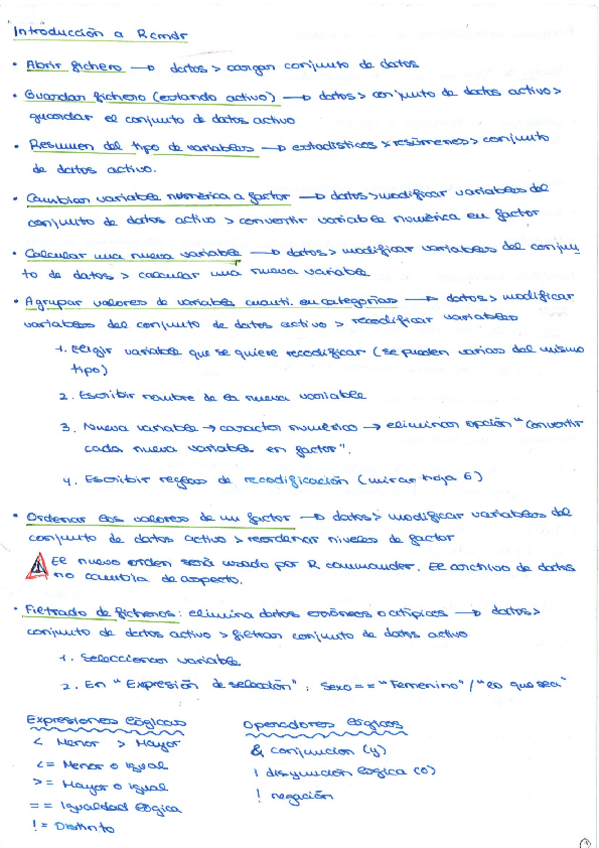 Introducción a Rcmdr
• Abrir fichero → datos > cargar conjunto de datos
• Guardar fichero (estando activo) → datos > conjunto de datos activo >
guardar el conjunto de datos activo
• Resumen del tipo de variables → estadísticos > resúmenes > conjunto
de datos activo.
• Cambiar variable numérica a factor → datos > modificar variables del
conjunto de datos activo > convertir variable numérica en factor
• Calcular una nueva variable → datos > modificar variables del conjun
to de datos > calcular una nueva variable
• Agrupar valores de variable cuanti. en categorías → datos > modificar
variables del conjunto de datos activo > recodificar variables
1. Elegir variable que se quiere recodificar (se pueden varias del mismo
tipo)
2. Escribir nombre de la nueva variable
3. Nueva variable → caracter numérico → eliminar opción "Convertir
cada nueva variable en factor".
4. Escribir reglas de recodificación (mirar hoja 6)
• Ordenar los valores de un factor → datos > modificar variables del
conjunto de datos activo > reordenar niveles de factor
El nuevo orden será usado por R commander. El archivo de datos
no cambia de aspecto.
• Filtrado de ficheros: elimina datos erróneos o atípicos → datos >
conjunto de datos activo > filtrar conjunto de datos activo
1. Seleccionar variable
2. En "Expresión de selección": Sexo == "Femenino" / "lo que sea"
Expresiones lógicas
< Menor > Mayor
<= Menor o igual
>= Mayor o igual
== Igualdad lógica
!= Distinto
Operadores lógicos
& conjunción (y)
| disyunción lógica (o)
! negación